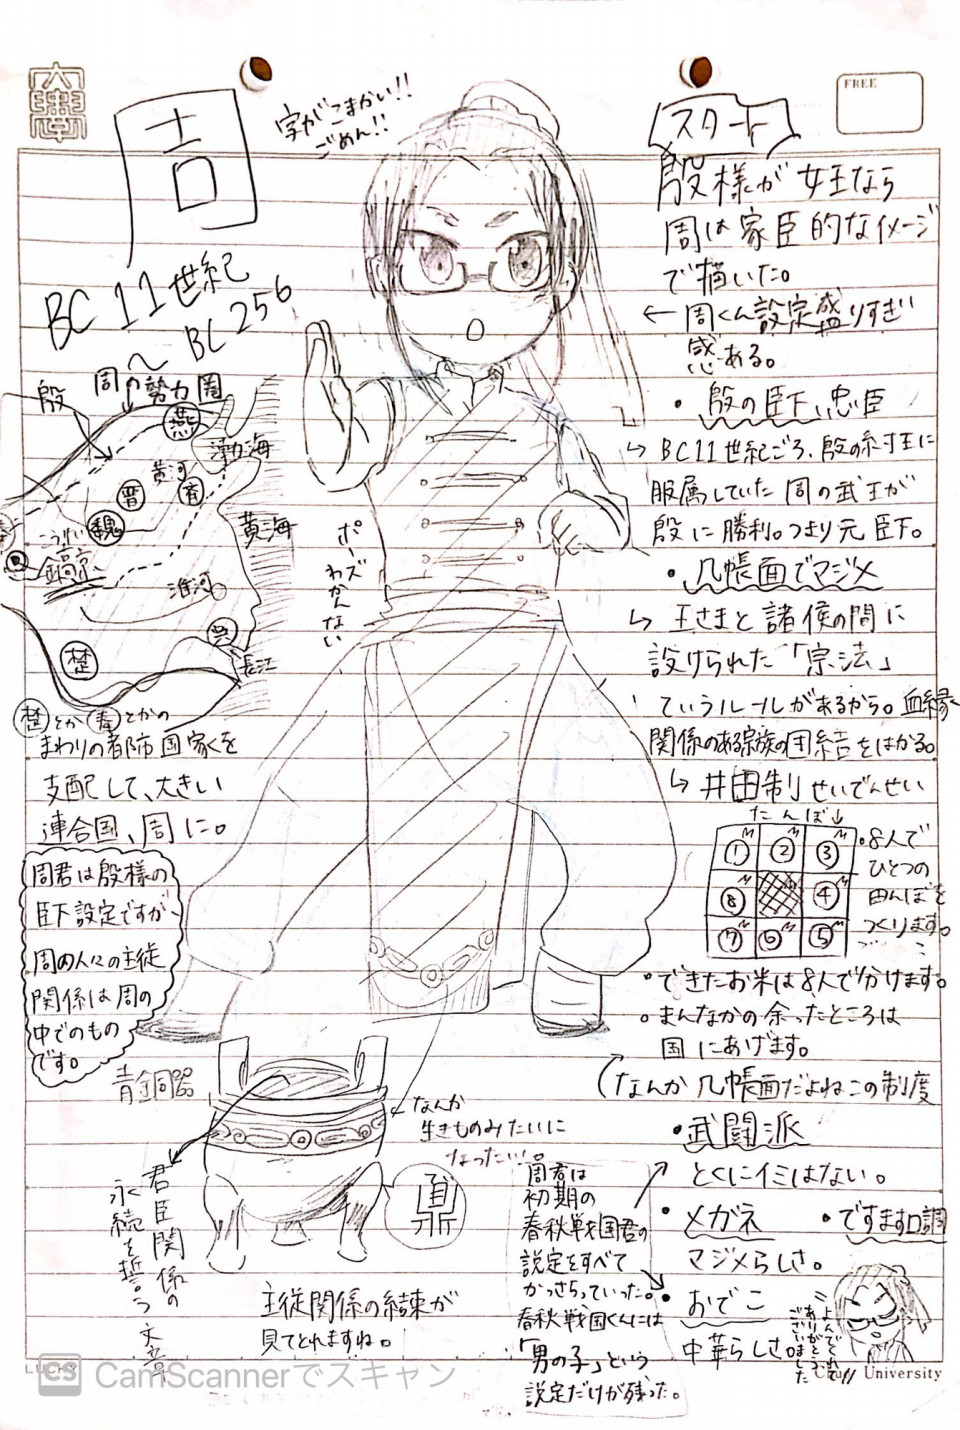 FREE
周
字がこまかい!!
ごめん!!
BC 11世紀
〜 BC 256
スタート
殷様が 女王なら
周は家臣的なイメージ
で描いた。
← 周くん設定盛りすぎ
感ある。
・殷の臣下、忠臣
↳ BC11世紀ごろ、殷の紂王に
服属していた 周の武王が
殷に勝利。つまり元臣下。
・几帳面でマジメ
↳ 王さまと諸侯の間に
設けられた「宗法」
ていうルールがあるから。血縁
関係のある宗族の団結をはかる。
↳ 井田制 せいでんせい
たんぼ↓
① ② ③
⑧ ④
⑦ ⑥ ⑤
・8人で
ひとつの
田んぼを
つくります。
・できたお米は8人で分けます。
・まんなかの余ったところは
国にあげます。
(なんか几帳面だよねこの制度
・武闘派
とくにイミはない。
・メガネ
マジメらしさ。
・ですます口調
・おでこ
中華らしさ。
よんでくれて
ありがとう
ございました
殷
周の勢力圏
燕
渤海
黄河
晋
斉
魏
黄海
こうけい
鎬京
淮河
呉
楚
長江
楚とか斉とかの
まわりの都市国家を
支配して、大きい
連合国、周に。
ポーズ
わかんない
周君は殷様の
臣下設定ですが、
周の人々の主従
関係は周の
中でのもの
です。
青銅器
君臣関係の
永続を誓う文章
←なんか
生きものみたいに
なった…。
鼎
主従関係の結束が
見てとれますね。
周君は
初期の
春秋戦国君の
設定をすべて
かっさらっていった。
春秋戦国くんには
「男の子」という
設定だけが残った。
CS CamScannerでスキャン
University